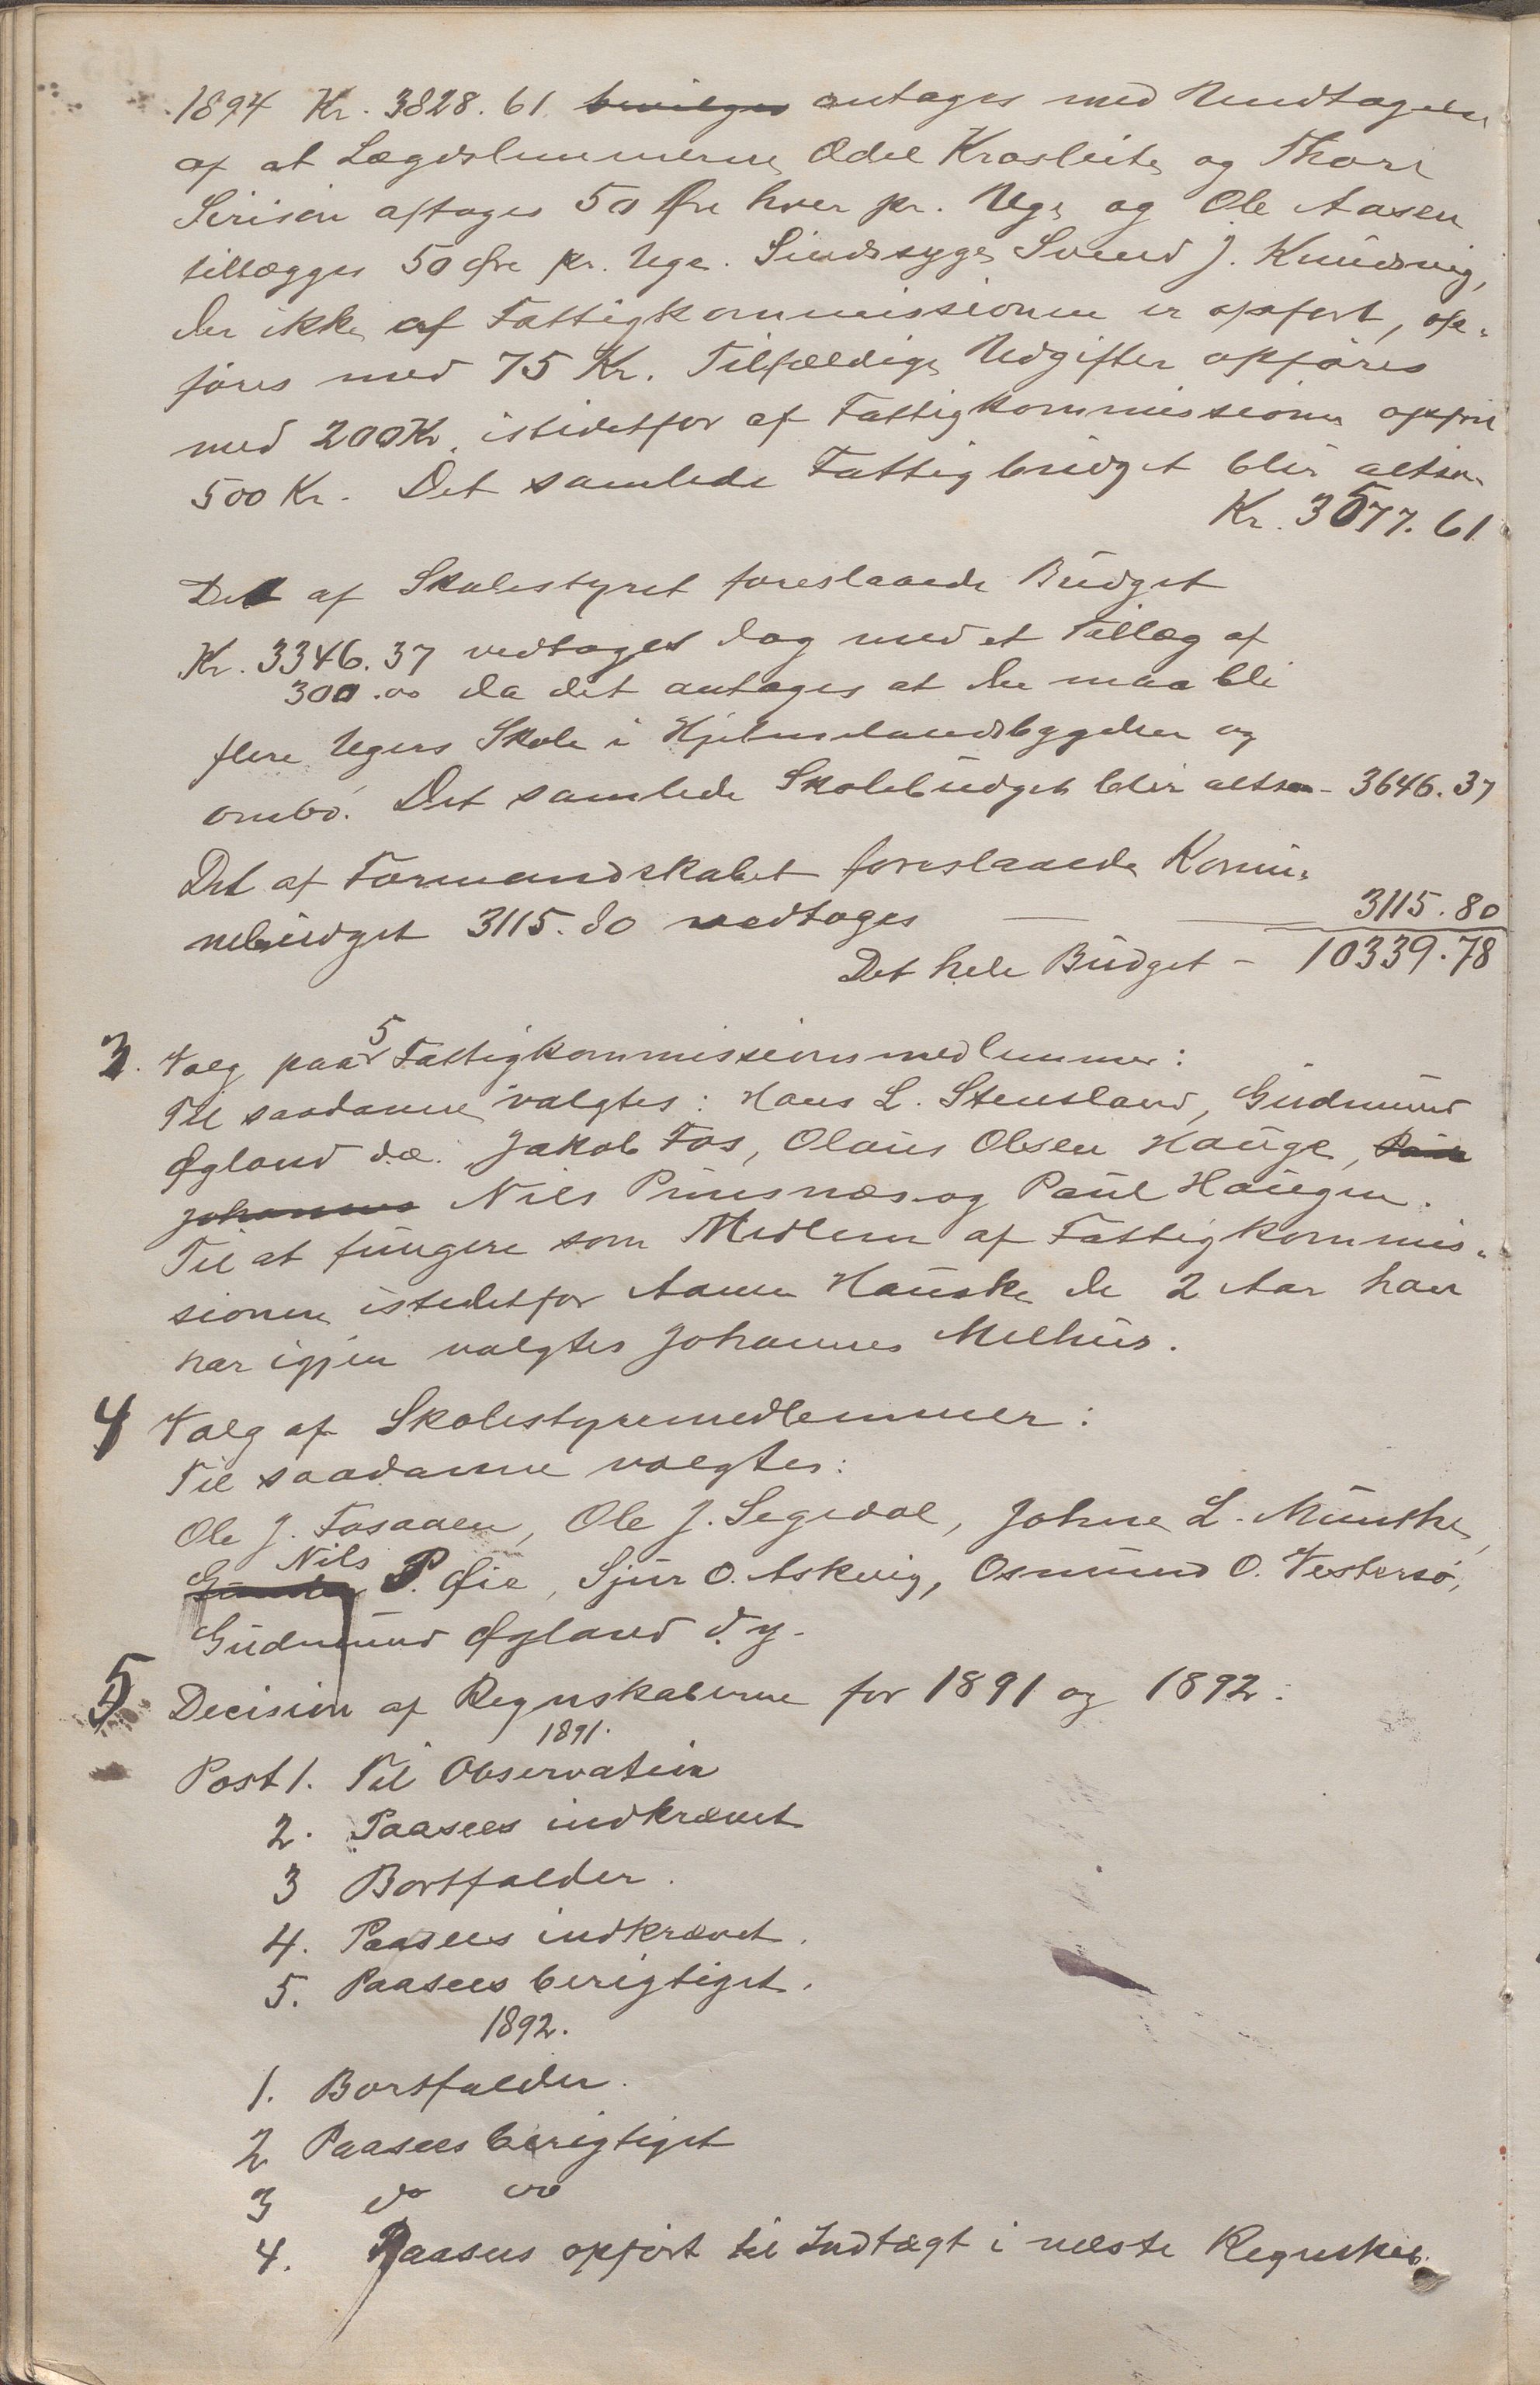 1894 Kr. 3828.61 ~~bevilges~~ antages med Undtagelse
af at Lægdslemmerne Odel Krosleite og Thore
Sirision aftages 50 Øre hver pr. Uge og Ole Aasen
tillægges 50 Øre pr. Uge. Sindssyge Svend J. Knudsvig,
der ikke af Fattigkommissionen er opført, op-
føres med 75 Kr. Tilfældige Udgifter opføres
med 200 Kr. istedetfor af Fattigkommissionen opført
500 Kr. Det samlede Fattigbudget blir altsaa
Kr. 3577.61
Det af Skolestyret foreslaaede Budget
Kr. 3346.37 vedtages dog med et Tillæg af
300.00 da det antages at der maa bli
flere Ugers Skole i Hjelmelandsbygden og
ombo. Det samlede Skolebudget blir altsaa - 3646.37
Det af Formandskabet foreslaaede Komu-
nebudget 3115.80 vedtages 3115.80
Det hele Budget - 10339.78
3. Valg paa 5 Fattigkommissionsmedlemmer:
Til saadanne valgtes: Hans L. Stensland, Gudmund
Øgland d.æ. Jakob Fos, Olaus Olsen Hauge, ~~Paul~~
~~Johannes~~ Nils Prinsnæs og Paul Haugen.
Til at fungere som Medlem af Fattigkommis-
sionen istedetfor Aamu Hauske de 2 Aar han
har igjen valgtes Johannes Melhus.
4 Valg af Skolestyremedlemmer:
Til saadanne valgtes:
Ole J. Fosaaen, Ole J. Segedal, Johne L. Munthe,
~~Gunder~~ Nils P. Øie, Sjur O. Askvig, Osmund O. Vestersø,
Gudmund Øgland d.y.
5 Decision af Regnskaberne for 1891 og 1892:
1891.
Post 1. Til Observation
2. Paasees indkrævet
3 Bortfalder.
4. Paasees indkrævet.
5. Paasees berigtiget.
1892.
1. Bortfalder.
2 Paasees berigtiget
3 do do
4. Paasees opført til Indtægt i næste Regnskab.